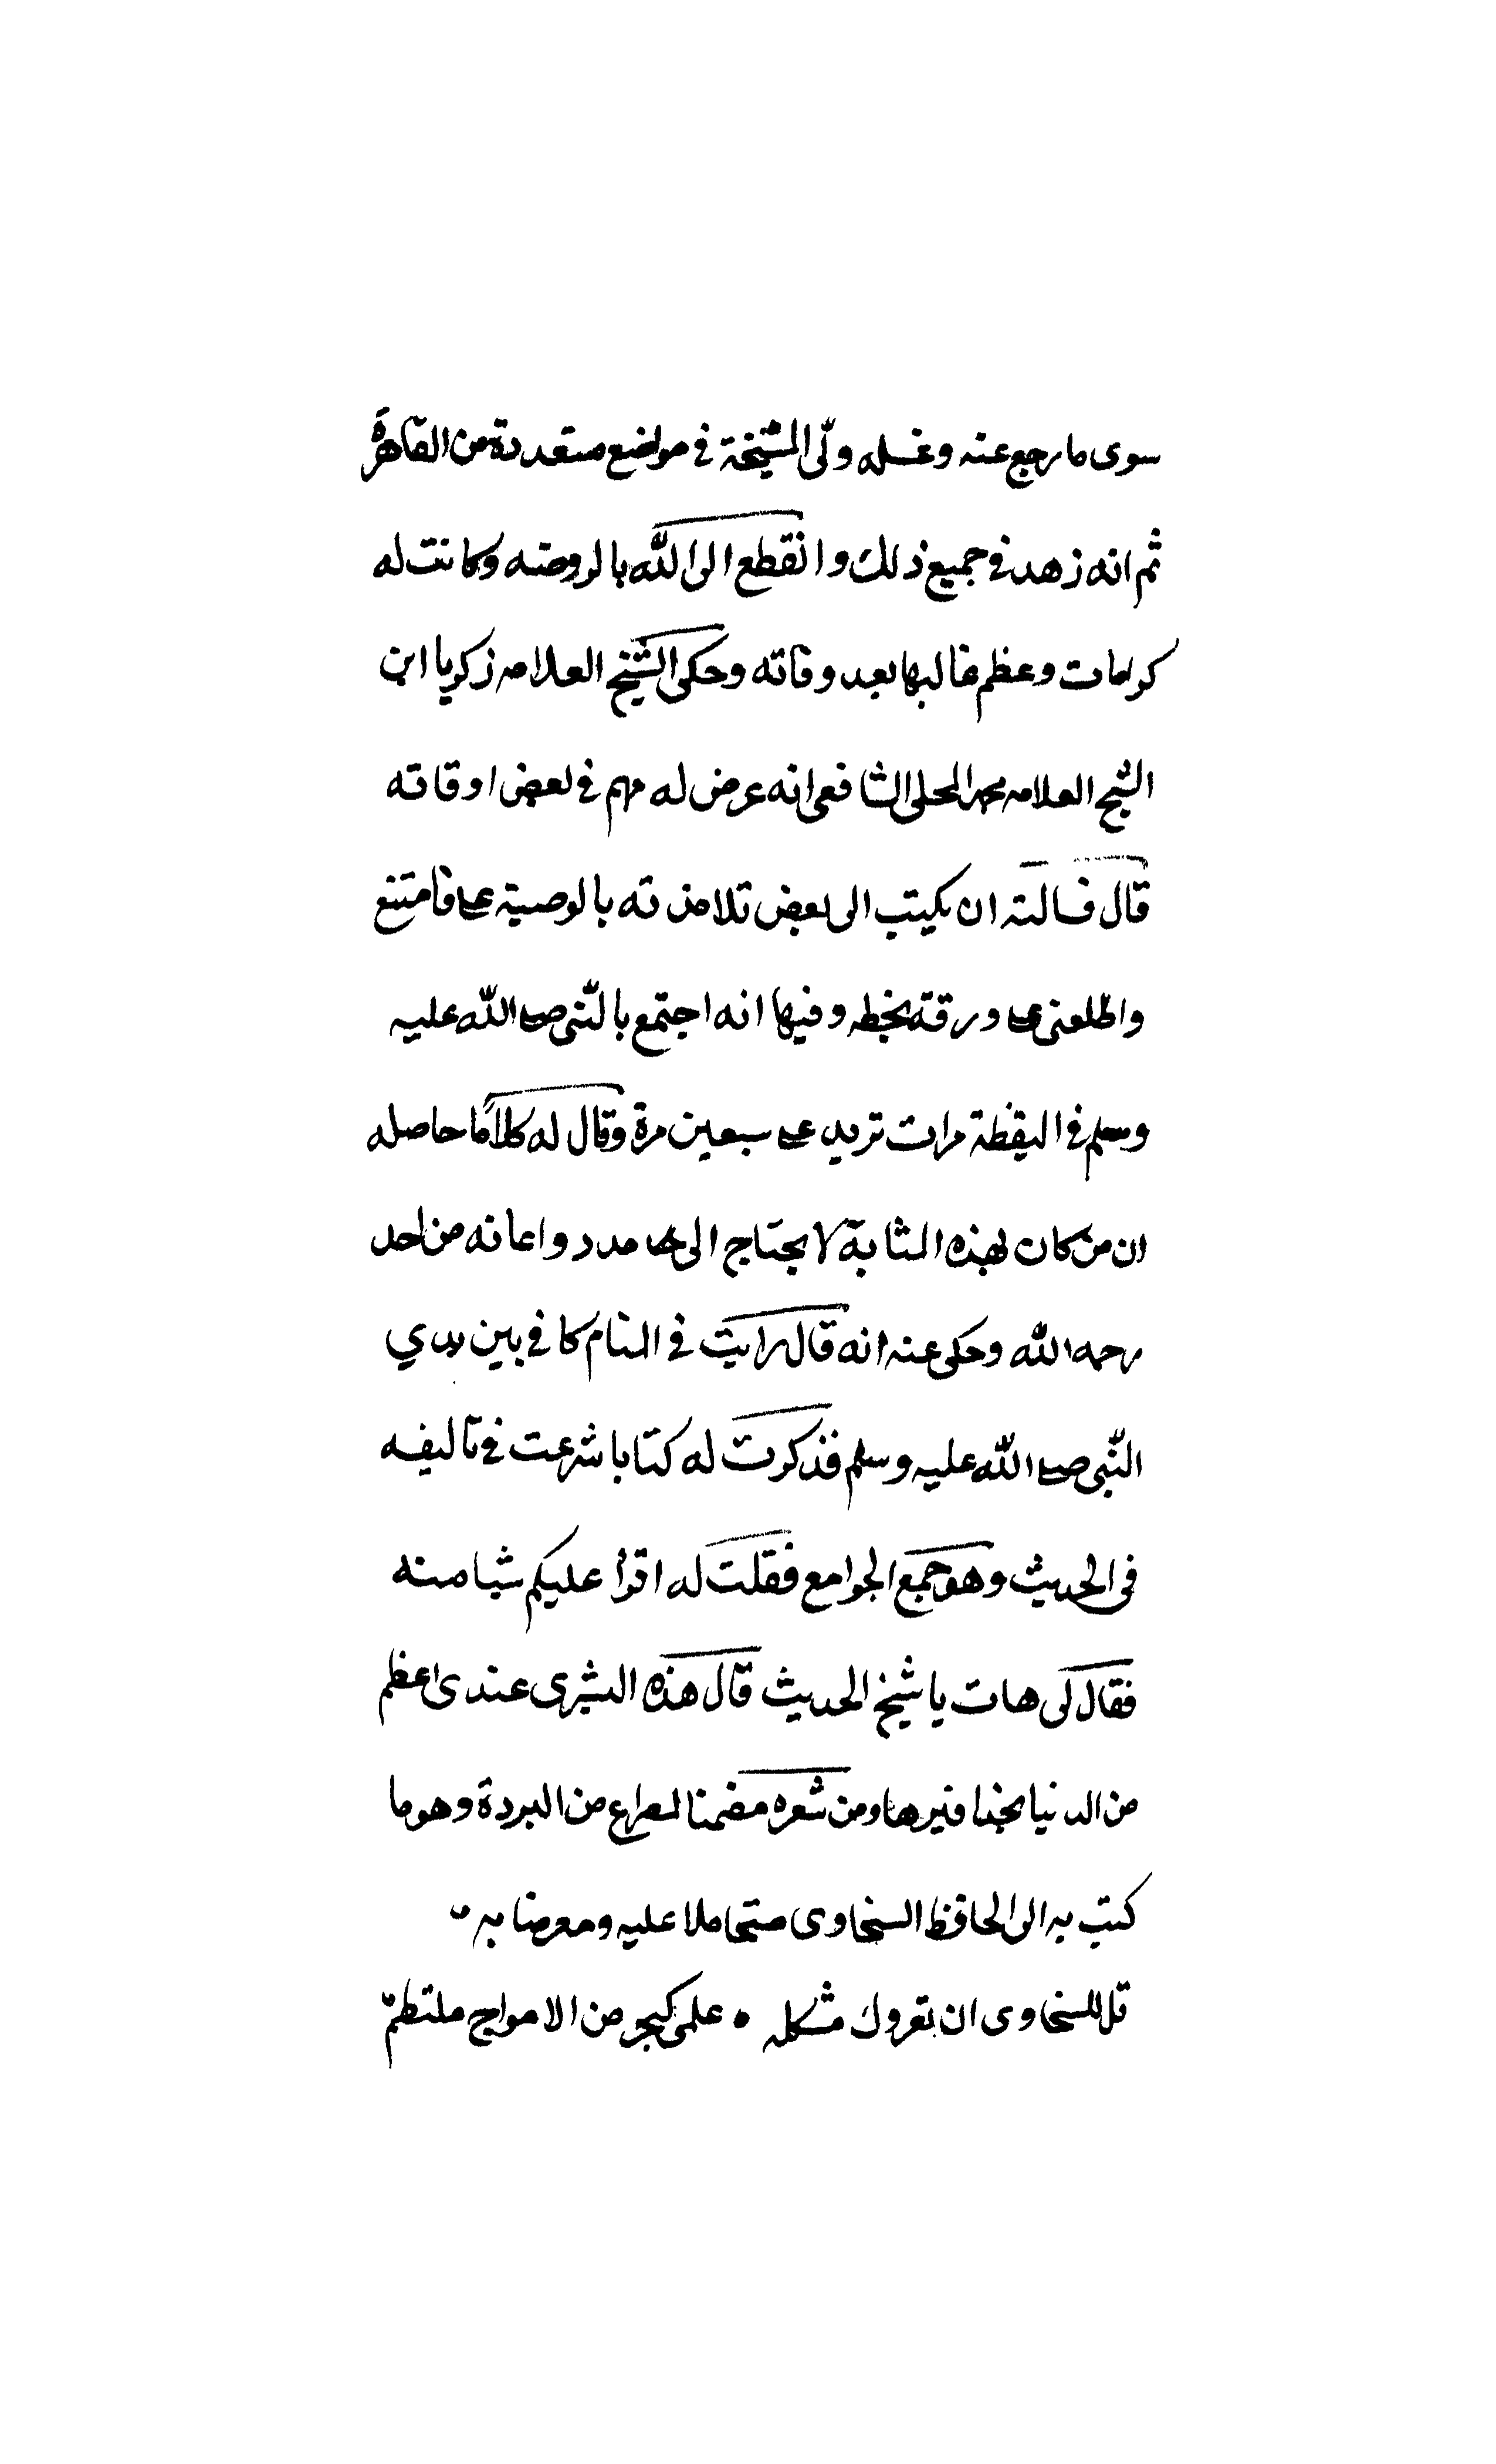 سوى ما رجع عنه وغسله وولّى المشيخة في مواضع متعددة من القاهرة
ثم انه زهد في جميع ذلك وانقطع الى الله بالروضه وكانت له
كرامات وعظم غالبها بعد وفاته وحكى الشيخ العلامه زكريا ابن
الشيخ العلامه محمد المحلى الشافعى انه عرض له مهم في بعض اوقاته
قال فسالته ان يكتب الى بعض تلامذته بالوصية على فامتنع
واطلعنى على ورقة بخطه وفيها انه اجتمع بالنّبى صلى الله عليه
وسلم في اليقظة مرات تزيد على سبعين مرة وقال له كلاًما حاصله
ان من كان بهذه المثابة لا يحتاج الى مدد واعانه من احد
رحمه الله وحكى عنه انه قال رايت في المنام كانى بين يدي
النّبى صلى الله عليه وسلم فذكرت له كتابا شرعت في تاليفه
فى الحديث وهو جمع الجوامع فقلت له اقرا عليكم شيا منه
فقال لى هات يا شيخ الحديث قال هذه البشرى عندى اعظم
من الدنيا بحذافيرها ومن شعره مضمنا لمصراع من البردة وهو ما
كتب به الى الحافظ السخاوى متحاملا عليه ومعرضا به
قل للسخاوى ان تعروك مشكله ٥ علمى كبحر من الامواج ملتطمّ